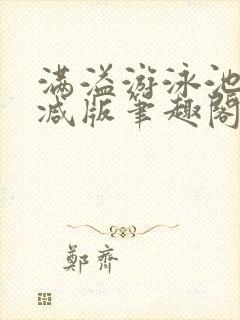 满溢游泳池
减版笔趣阁
鄭齊